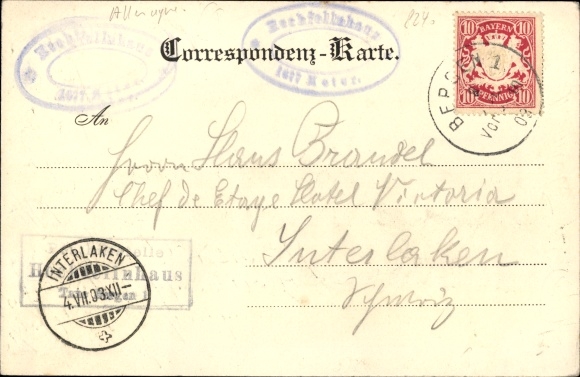 Allemagne
224
Hochfellnhaus
1677 Meter.
Hochfellnhaus
1677 Meter.
Correspondenz-Karte.
10 BAYERN 10
10 PFENNIG 10
BERGEN
1
Vor
03
An
Herrn Hans Brandel
Chef de Etage Hotel Victoria
Interlaken
Schweiz
Hochfellnhaus
INTERLAKEN
4.VII.03.XII-